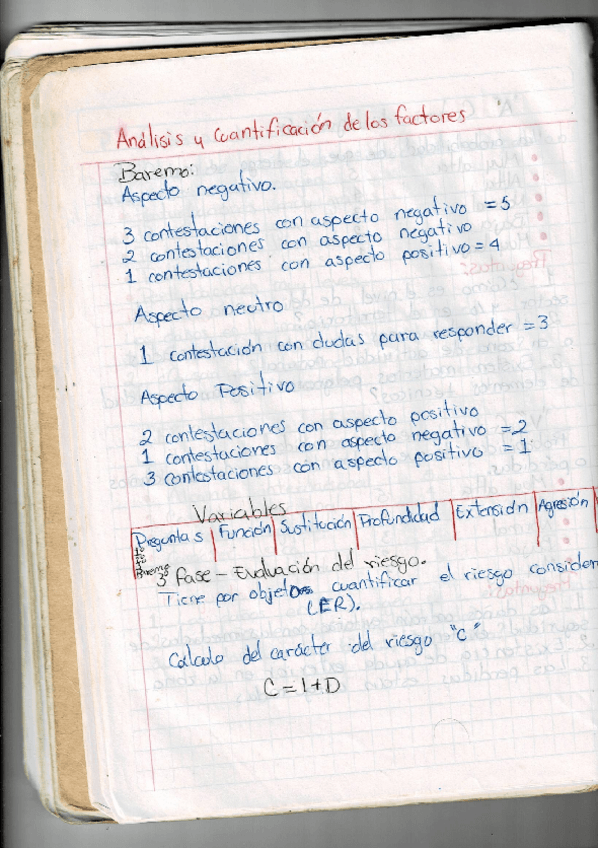 Análisis y Cuantificación de los factores
Baremo:
Aspecto negativo.
3 contestaciones con aspecto negativo = 5
2 contestaciones con aspecto negativo
1 contestaciones con aspecto positivo = 4
Aspecto neutro
1 contestación con dudas para responder = 3
Aspecto Positivo
2 contestaciones con aspecto positivo
1 contestaciones con aspecto negativo = 2
3 contestaciones con aspecto positivo = 1
Variables
Preguntas Función Sustitución Profundidad Extensión Agresión
Baremo
3° Fase - Evaluación del riesgo.
Tiene por objeto cuantificar el riesgo consider
(ER).
Cálculo del carácter del riesgo "C"
C = I + D